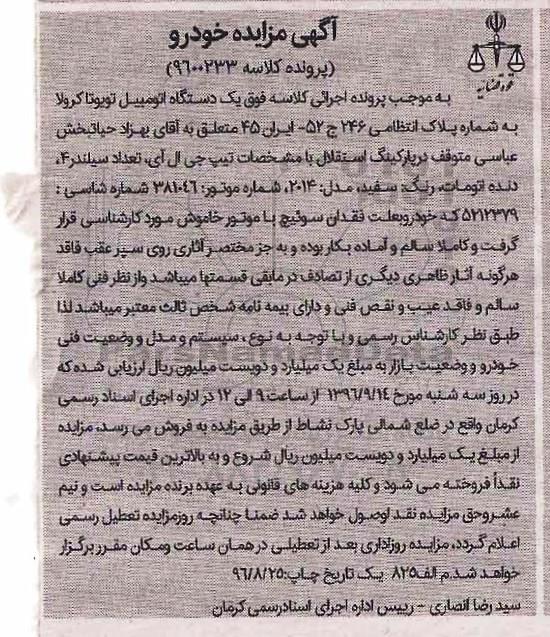 آگهی مزایده خودرو
(پرونده کلاسه ۹۶۰۰۲۳۳)
قوه قضاییه
به موجب پرونده اجرائی کلاسه فوق یک دستگاه اتومبیل تویوتا کرولا
به شماره پلاک انتظامی ۲۴۶ ج ۵۲- ایران ۴۵ متعلق به آقای بهزاد حیاتبخش
عباسی متوقف در پارکینگ استقلال با مشخصات تیپ جی ال آی، تعداد سیلندر۴،
دنده اتومات، رنگ: سفید، مدل: ۲۰۱۴، شماره موتور: ۳۸۱۰۴۶ شماره شاسی :
۵۲۱۲۳۷۹ که خودرو بعلت فقدان سوئیچ با موتور خاموش مورد کارشناسی قرار
گرفت و کاملا سالم و آماده بکار بوده و به جز مختصر آثاری روی سپر عقب فاقد
هرگونه آثار ظاهری دیگری از تصادف در مابقی قسمتها میباشد و از نظر فنی کاملا
سالم و فاقد عیب و نقص فنی و دارای بیمه نامه شخص ثالث معتبر میباشد لذا
طبق نظر کارشناس رسمی و با توجه به نوع ، سیستم و مدل و وضعیت فنی
خودرو و وضعیت بازار به مبلغ یک میلیارد و دویست میلیون ریال ارزیابی شده که
در روز سه شنبه مورخ ۱۳۹۶/۹/۱۴ از ساعت ۹ الی ۱۲ در اداره اجرای اسناد رسمی
کرمان واقع در ضلع شمالی پارک نشاط از طریق مزایده به فروش می رسد، مزایده
از مبلغ یک میلیارد و دویست میلیون ریال شروع و به بالاترین قیمت پیشنهادی
نقداً فروخته می شود و کلیه هزینه های قانونی به عهده برنده مزایده است و نیم
عشر و حق مزایده نقد اوصول خواهد شد ضمنا چنانچه روز مزایده تعطیل رسمی
اعلام گردد، مزایده روز اداری بعد از تعطیلی در همان ساعت و مکان مقرر برگزار
خواهد شد.م الف۸۲۵ یک تاریخ چاپ:۹۶/۸/۲۵
سید رضا انصاری - رییس اداره اجرای اسناد رسمی کرمان